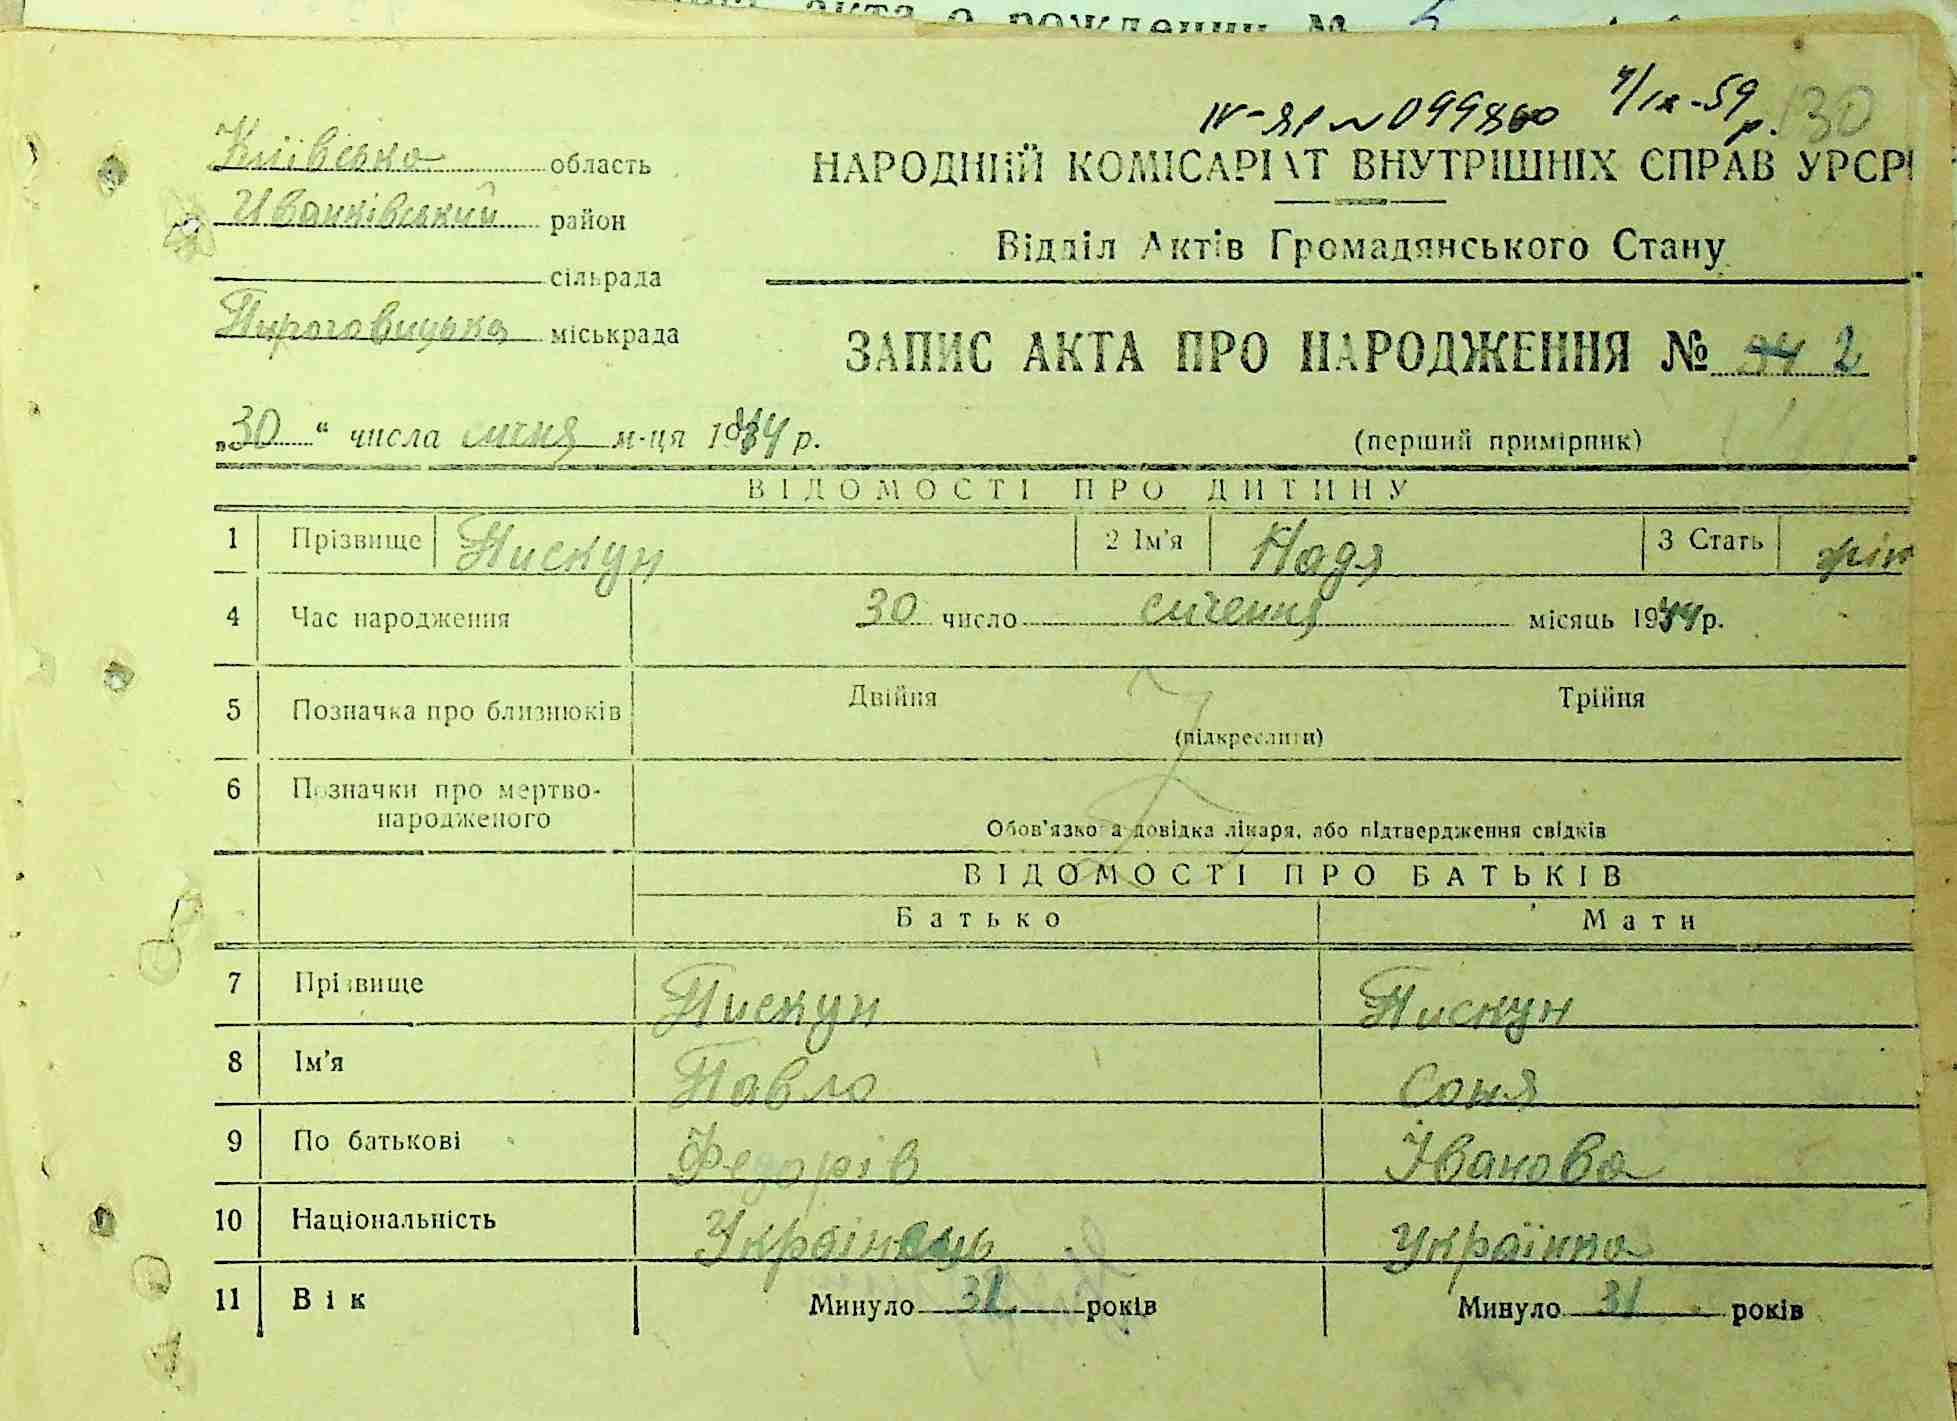 акта о рождении №
IV-ЯР № 099860 4/IX-59 р. 130
Київська область
НАРОДНІЙ КОМІСАРІАТ ВНУТРІШНІХ СПРАВ УРСР
Иванківський район
Відділ Актів Громадянського Стану
сільрада
Пироговицька міськрада
ЗАПИС АКТА ПРО НАРОДЖЕННЯ № 2
„30“ числа січня м-ця 1944 р.
(перший примірник)
ВІДОМОСТІ ПРО ДИТИНУ
1 Прізвище Пискун 2 Ім'я Надя 3 Стать жін
4 Час народження 30 число січення місяць 1944 р.
5 Позначка про близнюків Двійня Трійня
(підкреслити)
6 Позначки про мертво-
народженого
Обов'язкова довідка лікаря, або підтвердження свідків
ВІДОМОСТІ ПРО БАТЬКІВ
Батько Мати
7 Прізвище Пискун Пискун
8 Ім'я Павло Соня
9 По батькові Федорів Іванова
10 Національність Українець Українка
11 Вік Минуло 31 років Минуло 31 років